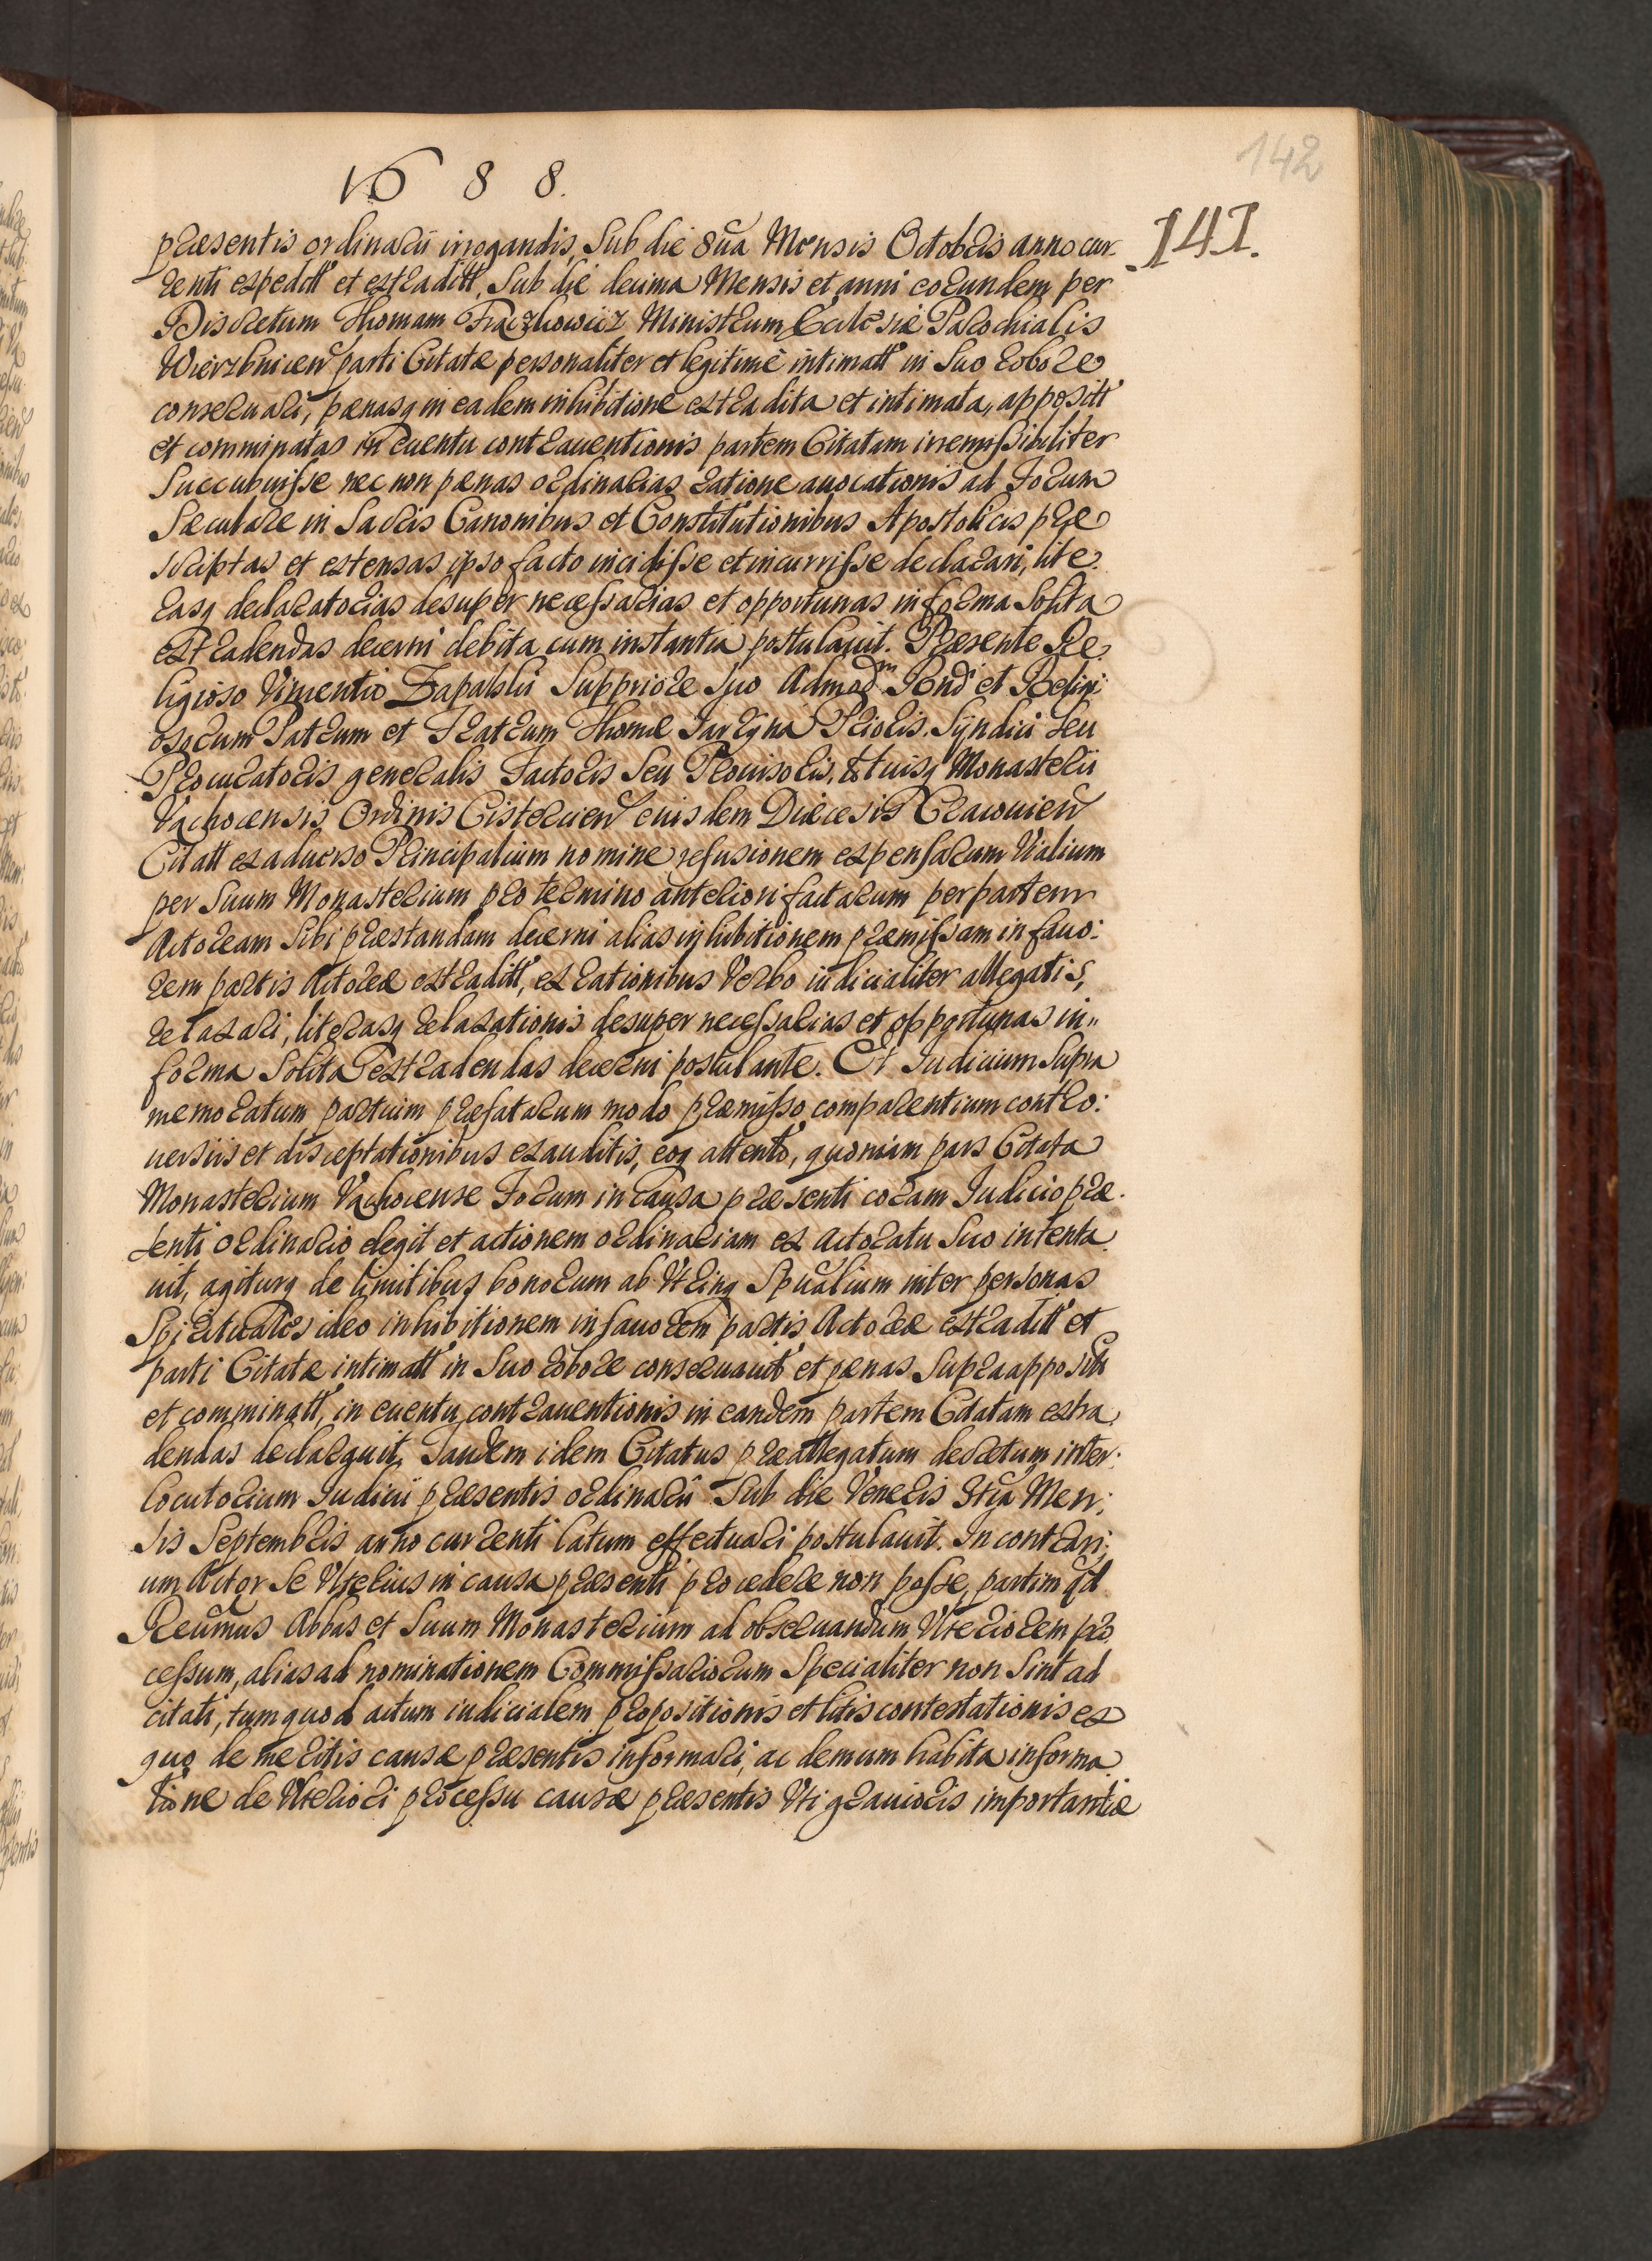 142
1688.
141.
præsentis ordinarii irrogandis, sub die 8ua Mensis Octobris anno cur-
renti expeditt et extraditt, Sub die decima Mensis et anni eorundem per
Discretum Thomam Frączkowicz Ministrum Ecclesiæ Parochialis
Wierzbnicen parti Citatæ personaliter et legitime intimatt in suo robore
conseruari, pænasq in eadem inhibitione extradita et intimata, appositt
et comminatas in euentu contrauentionis partem Citatam irremissibiliter
Succubuisse nec non pænas ordinarias ratione auocationis ad Forum
Sæculare in Sacris Canonibus et Constitutionibus Apostolicis præ
scriptas et extensas ipso facto incidisse et incurrisse declarari, lite:
rasq declaratorias desuper necessarias et opportunas in forma Solita
extradendas decerni debita cum instantia postulauit. Præsente Re:
ligioso Vincentio Zapalski Suppriore suo Admodm Rnd et Religi:
osorum Patrum et Fratrum Thomæ Prioris, Syndici seu
Procuratoris generalis Factoris seu Prouisoris, totiusq Monasterii
Vąchocensis Ordinis Cistercien eiusdem Diæcesis Cracouien
Citatt ex aduerso Principalium nomine refusionem expensarum Vialium
per suum Monasterium pro termino anteriori factarum per partem
Actoream sibi præstandam decerni alias inhibitionem præmissam in fauo:
rem partis Actoreæ extraditt, ex rationibus Verbo iudicialiter allegatis,
relaxari, literasq relaxationis desuper necessarias et opportunas in„
forma Solita extradendas decerni postulante. Et Iudicium supra
memoratum partium præfatarum modo præmisso comparentium contro:
uersiis et disceptationibus exauditis, eoq attento, quoniam pars Citata
Monasterium Vąchocense Forum in causa præsenti coram Iudicio præ.
senti ordinario elegit et actionem ordinariam ex actoratu suo intenta
uit, agiturq de limitibus bonorum ab Vtrinq Spualium inter personas
Spirituales ideo inhibitionem in fauorem partis Actoreæ extraditt et
parti Citatæ intimatt in suo robore conseruauit et pænas supraapposit
et comminatt, in euentu contrauentionis in eandem partem Citatam extra
dendas declarauit, Tandem idem Citatus præallegatum decretum inter:
locutorium Iudicii præsentis ordinarii Sub die Veneris 3tia Men:
sis Septembris anno currenti latum effectuari postulauit. In contrari:
um Actor se Vlterius in causa præsenti procedere non posse, partim qd
Reumus Abbas et suum Monasterium ad obseruandum Vlteriorem pro
cessum, alias ad nominationem Commissariorum Specialiter non sint ad
citati, tum quod actum iudicialem propositionis et litis contestationis ex
quo de meritis causæ præsentis informari, ac demum habita informa
tione de Vlteriori processu causæ præsentis Vti grauioris importantiæ